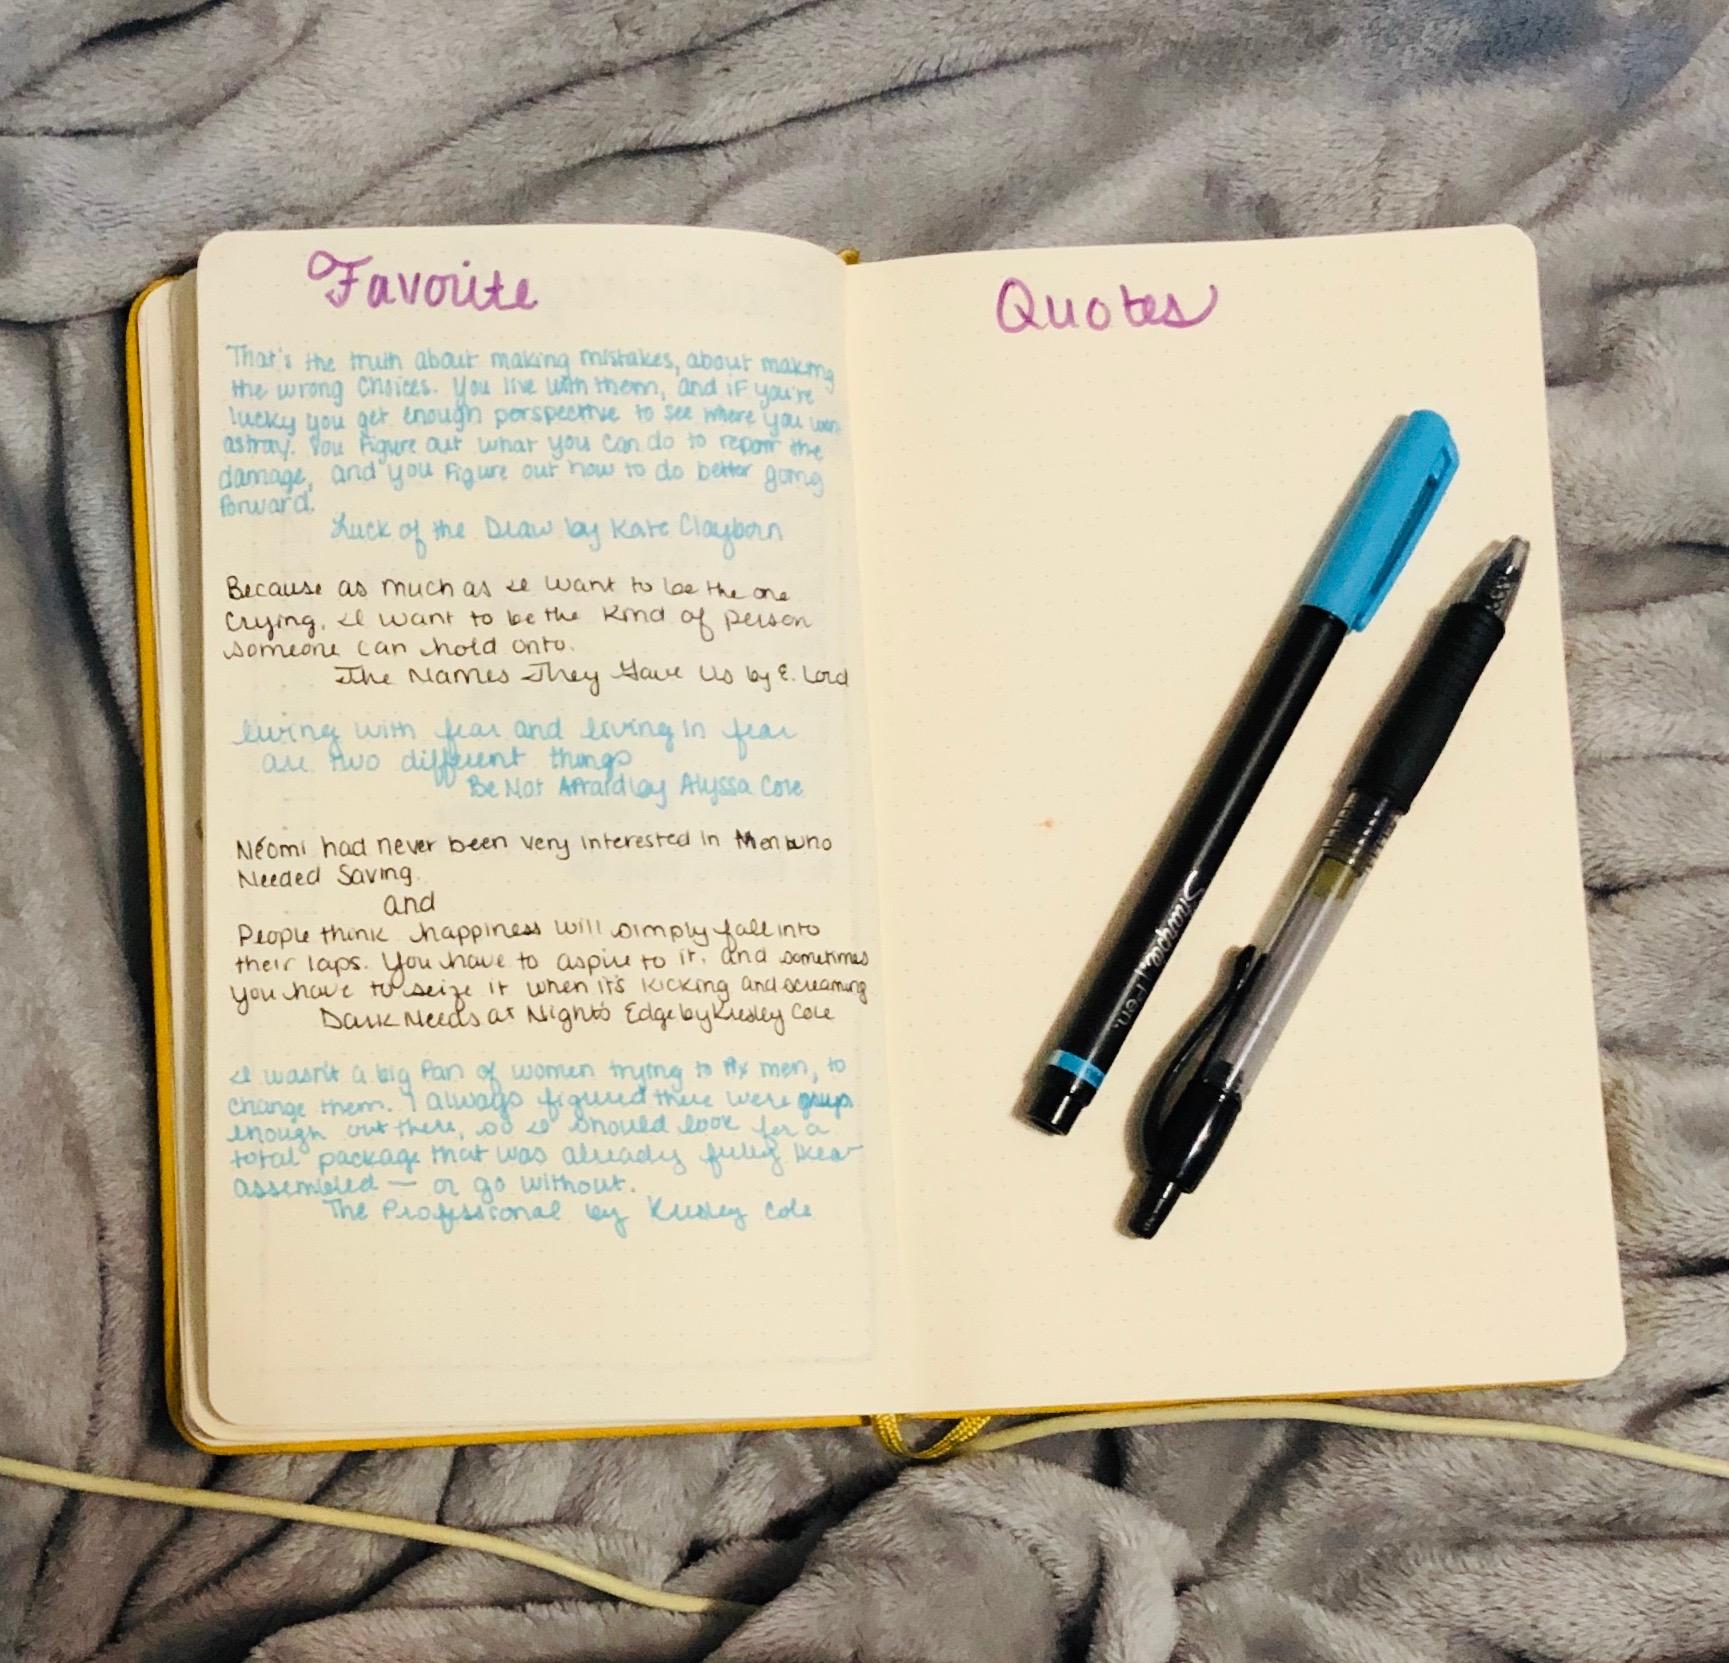 Favorite
Quotes
That's the truth about making mistakes, about making
the wrong choices. You live with them, and if you're
lucky you get enough perspective to see where you went
astray. You figure out what you can do to repair the
damage, and you figure out how to do better going
forward.
Luck of the Draw by Kate Clayborn
Because as much as I want to be the one
crying, I want to be the kind of person
someone can hold onto.
The Names They Gave Us by E. Lord
living with fear and living in fear
are two different things
Be Not Afraid by Alyssa Cole
Néomi had never been very interested in Men who
Needed Saving.
and
People think happiness will simply fall into
their laps. You have to aspire to it. and sometimes
you have to seize it when it's kicking and screaming
Dark Needs at Night's Edge by Kresley Cole
I wasn't a big fan of women trying to fix men, to
change them. I always figured there were guys
enough out there, so I should look for a
total package that was already fully Ikea
assembled — or go without.
The Professional by Kresley Cole
Sharpie Pen.